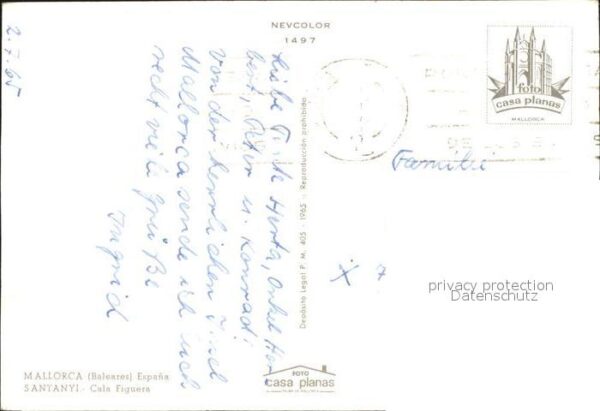 NEVCOLOR
1497
2.7.65
Liebe Tante Herta, Onkel
Peter u. Konrad!
Von der herrlichen Insel
Mallorca sende ich euch
recht viele Grüße
Ingrid
Depósito Legal P. M. 405 - 1965 - Reproducción prohibida
foto
casa planas
MALLORCA
Familie
privacy protection
Datenschutz
MALLORCA (Baleares) España
SANTANYI.- Cala Figuera
FOTO
casa planas